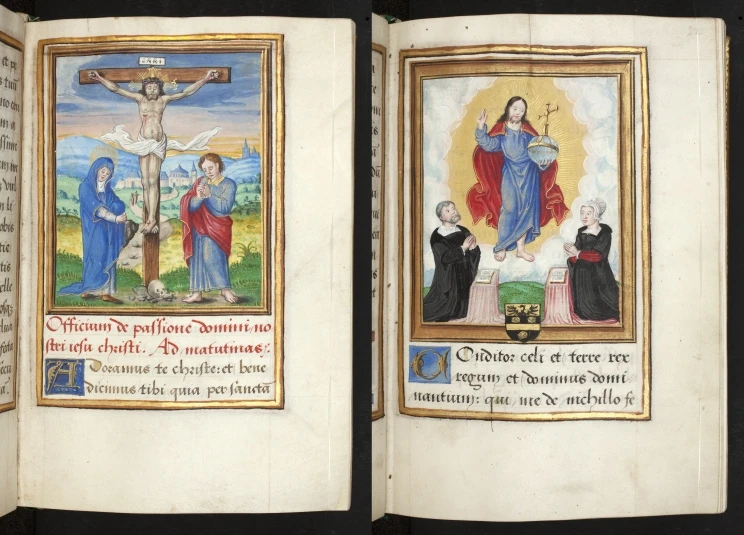 INRI
Officium de passione domini no
stri iesu christi. Ad matutinas.
ADoramus te christe: et bene
dicimus tibi quia per sanctā
COnditor celi et terre rex
regum et dominus domi
nantium: qui me de nichillo fe